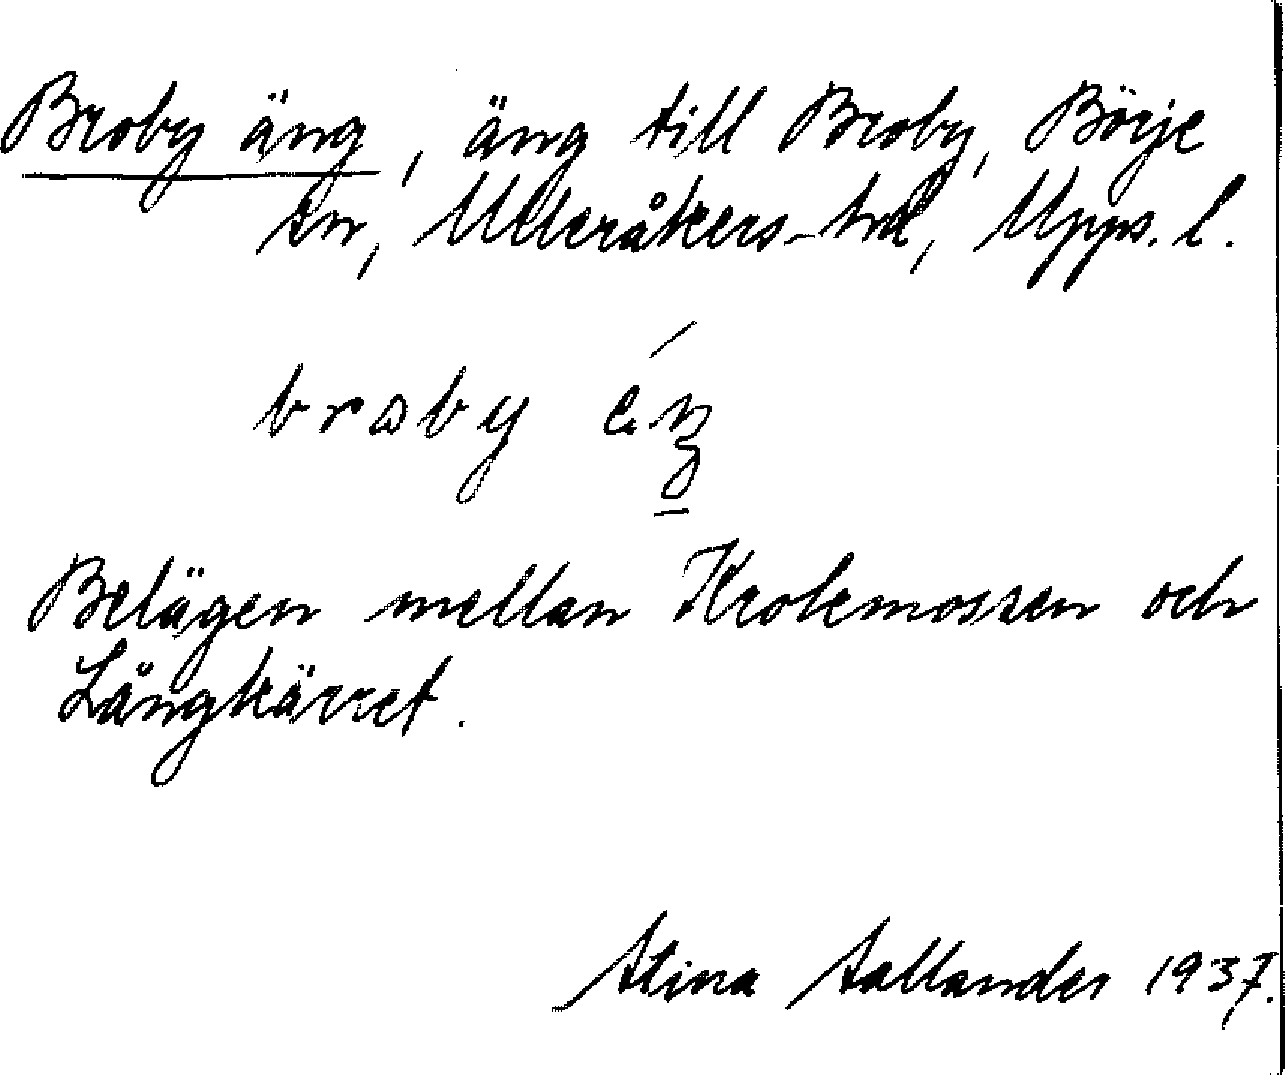 Broby äng, äng till Broby, Börje
sn, Ulleråkers hd, Upps. l.
broby
Belägen mellan Krokmossen och
Långkärret.
Stina Sallander 1937.